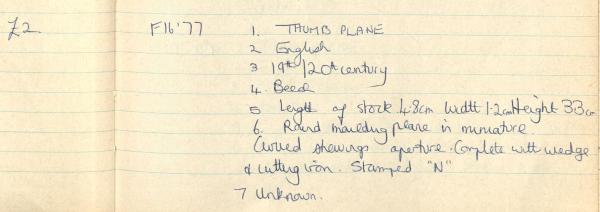 £2 F16'77 1. THUMB PLANE
2 English
3 19th/20th century
4. Beech
5 Length of stock 4.8cm Width 1.2cm Height 33cm
6. Round moulding plane in miniature.
Curved shavings aperture. Complete with wedge
& cutting iron. Stamped "N"
7 Unknown.